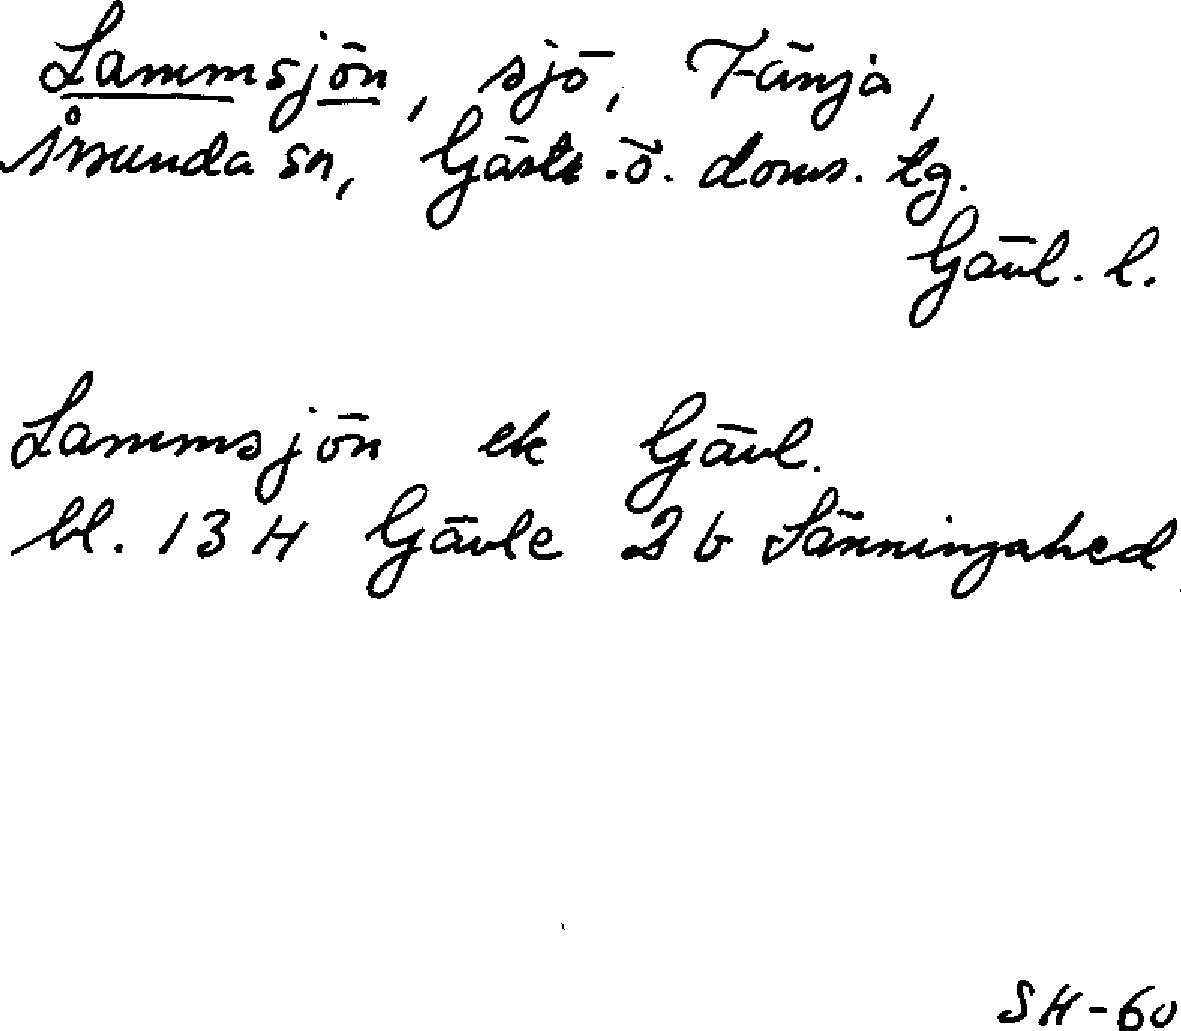 Lammsjön, sjö, Fänja,
Årsunda sn, Gästr.ö. doms. tg.
Gävl. l.
Lammsjön ek Gävl.
bl. 13 H Gävle 2 b Sänningahed
SH-60